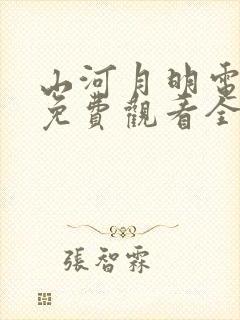 山河月明電
免費觀看全
張智霖